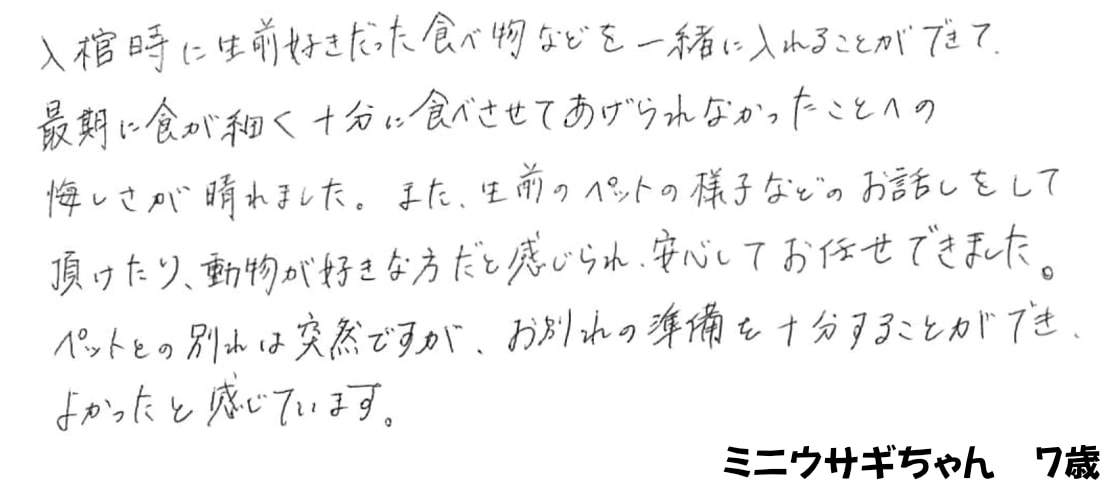 入棺時に生前好きだった食べ物などを一緒に入れることができて、
最期に食が細く十分に食べさせてあげられなかったことへの
悔しさが晴れました。また、生前のペットの様子などのお話しをして
頂けたり、動物が好きな方だと感じられ、安心してお任せできました。
ペットとの別れは突然ですが、お別れの準備を十分することができ、
よかったと感じています。
ミニウサギちゃん　7歳